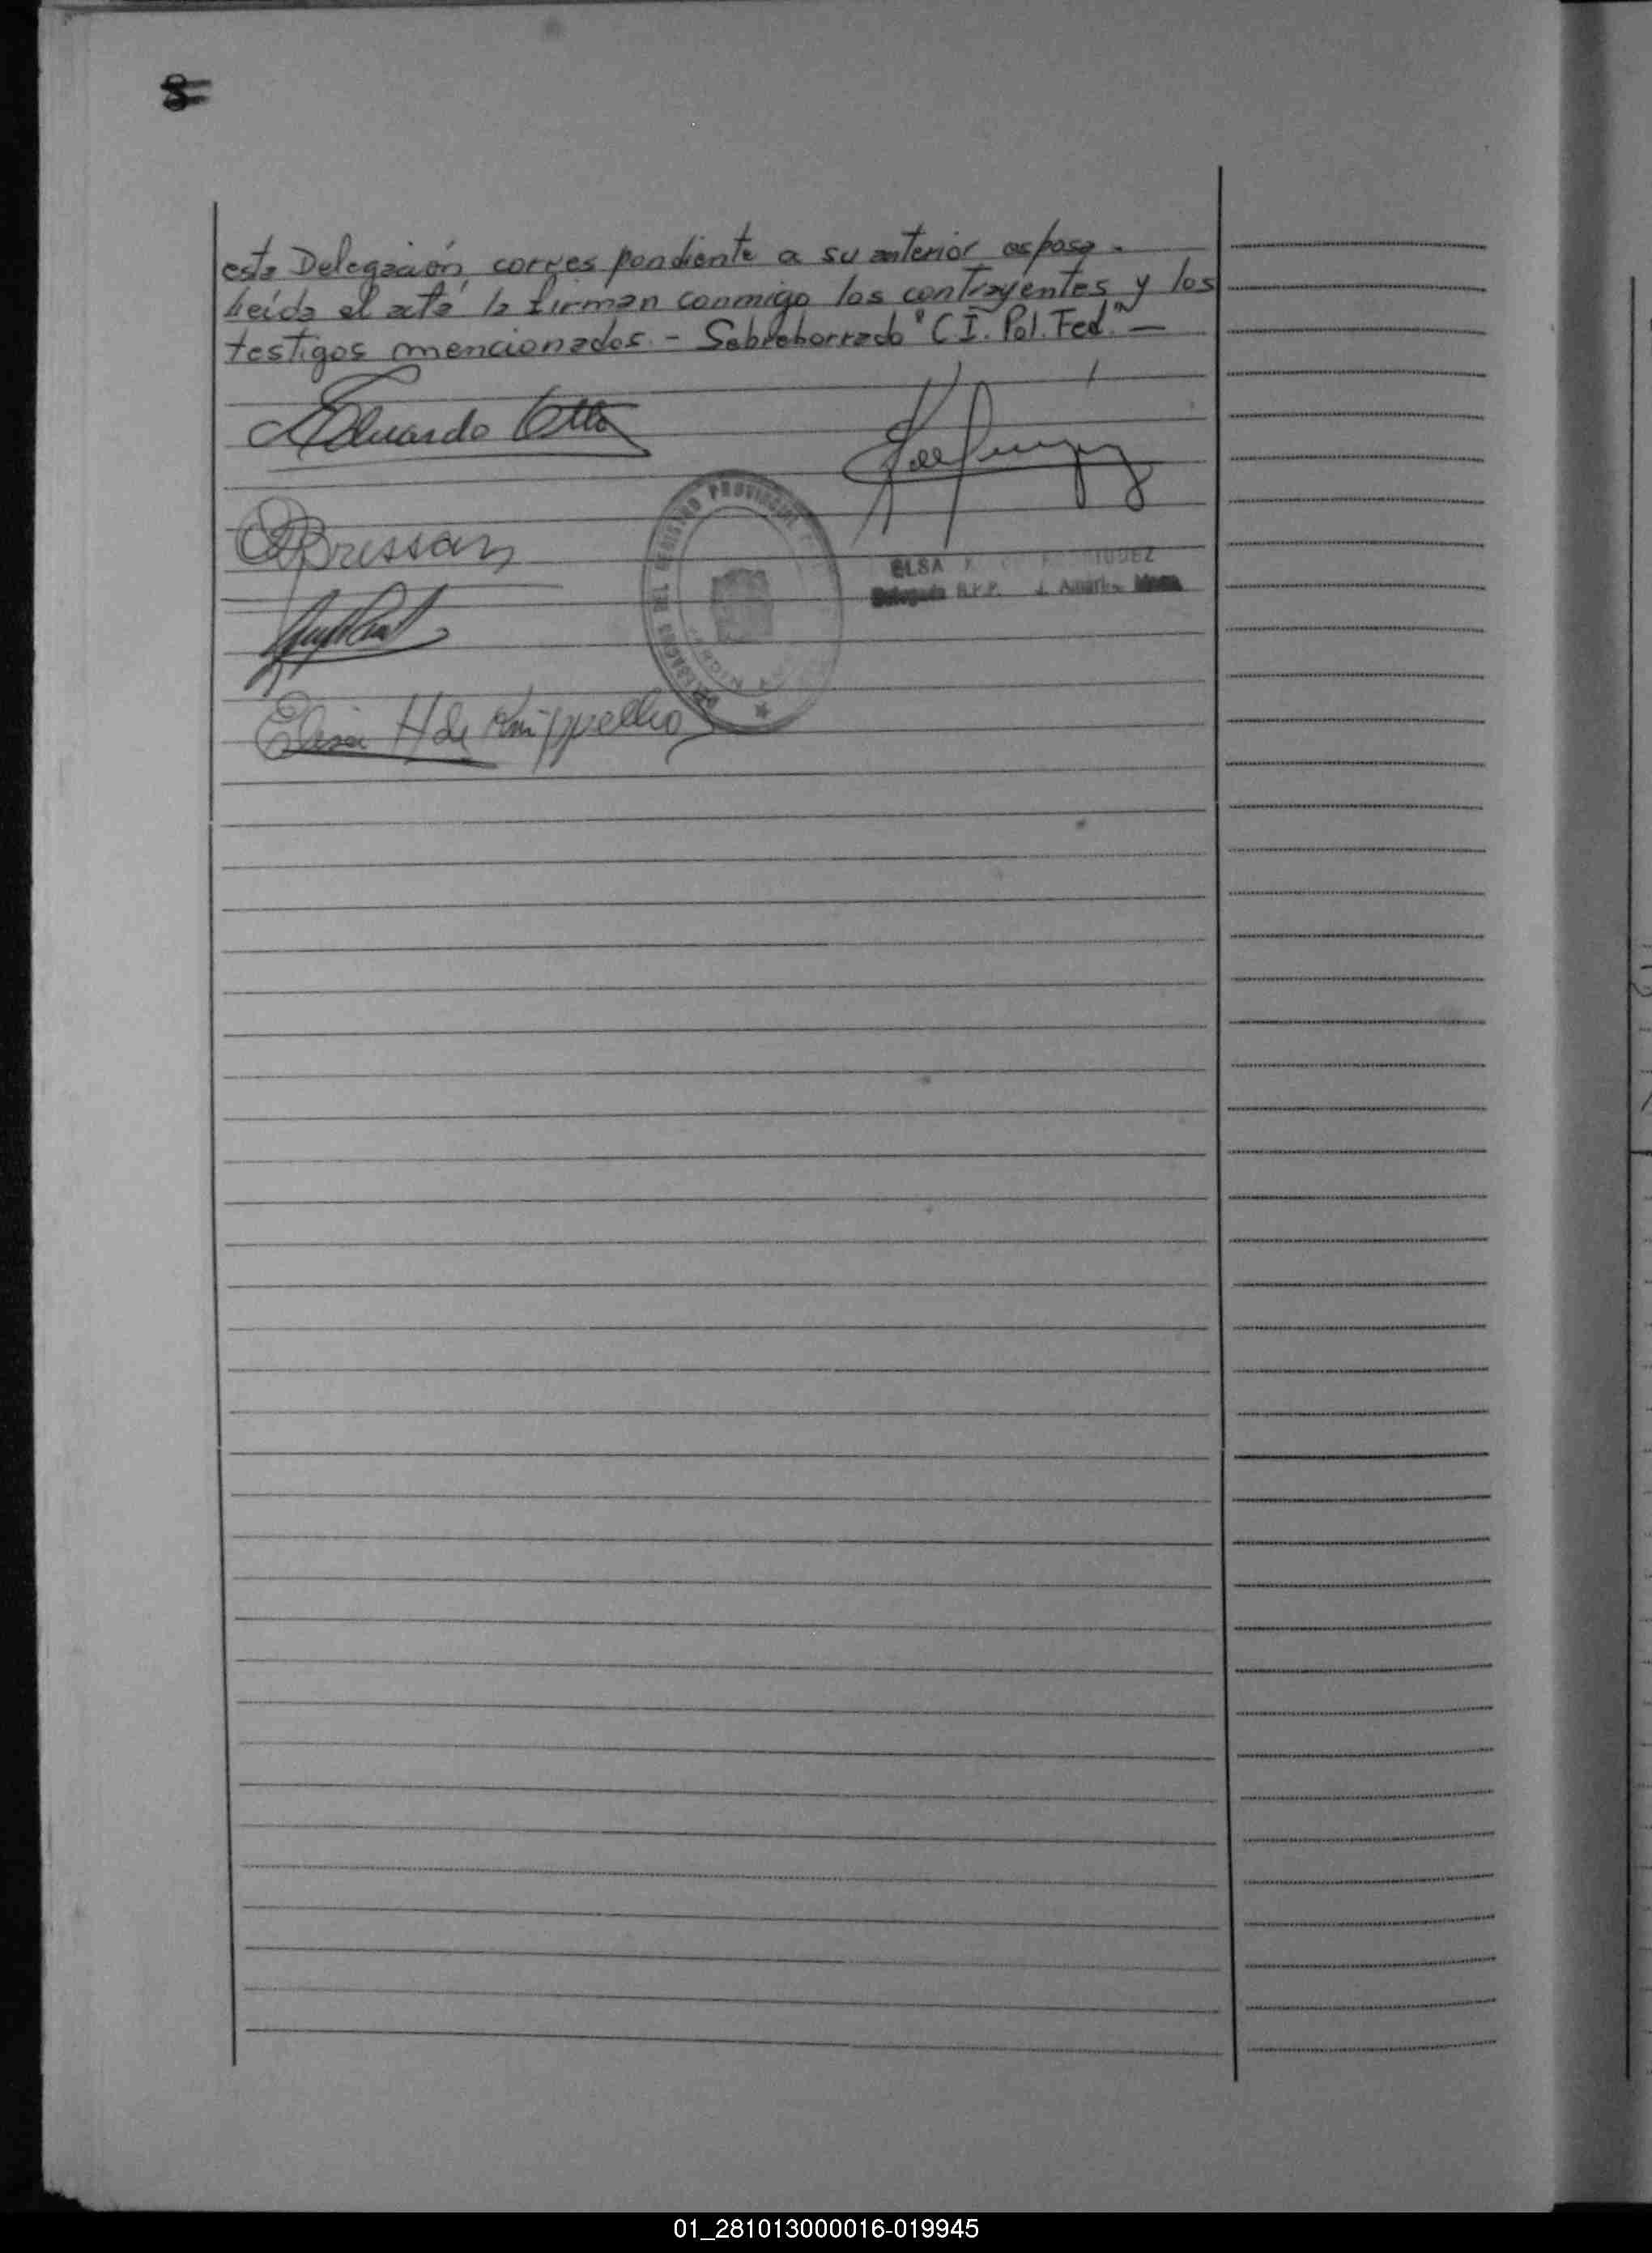 8
esta Delegación, correspondiente a su anterior esposa.-
Leída el acta la firman conmigo los contrayentes y los
testigos mencionados.- Sobreborrado "C.I. Pol. Fed." —
Eduardo Otto
Bressan
Elisa H de
DEL REGISTRO PROVINCIAL
ELSA
Delegada R.P.P.
01_281013000016-019945